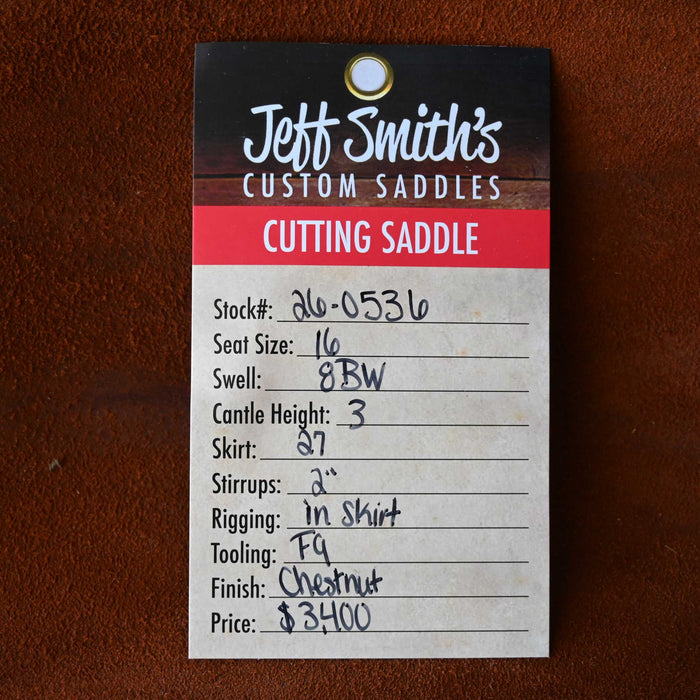 Jeff Smith's
CUSTOM SADDLES
CUTTING SADDLE
Stock#: 26-0536
Seat Size: 16
Swell: 8BW
Cantle Height: 3
Skirt: 27
Stirrups: 2"
Rigging: in Skirt
Tooling: FQ
Finish: Chestnut
Price: $3,400